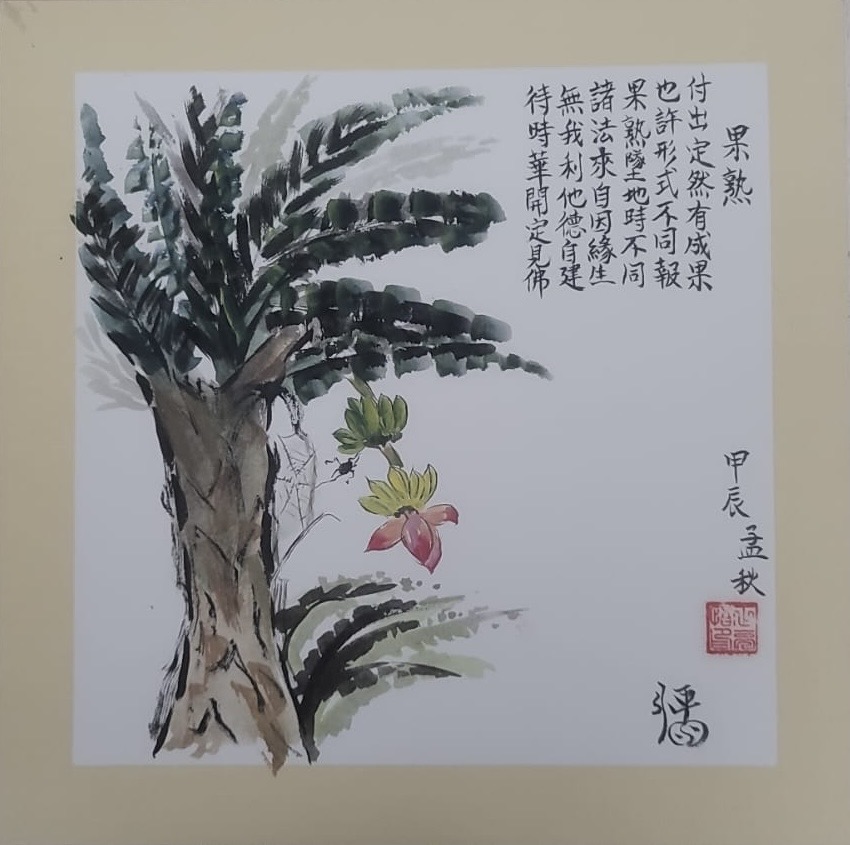 果熟
付出定然有成果
也許形式不同報
果熟墜地時不同
諸法來自因緣生
無我利他德自建
待時華開定見佛
甲辰
孟秋